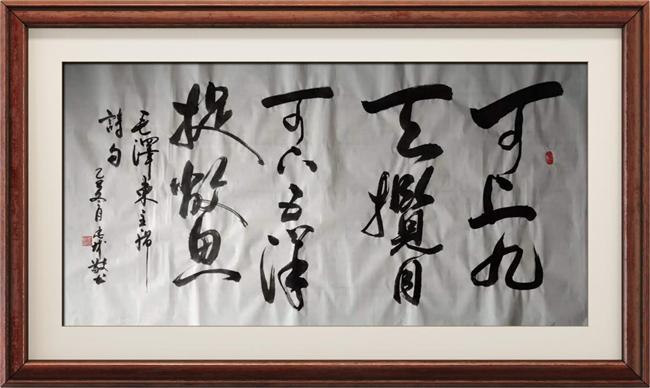 可上九
天攬月
可下五洋
捉鱉
毛澤東主席
詩句
亥冬月敬书